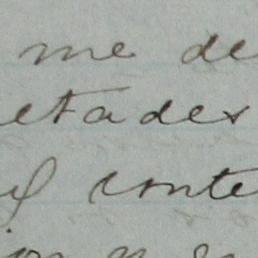 me de
etades
el conte